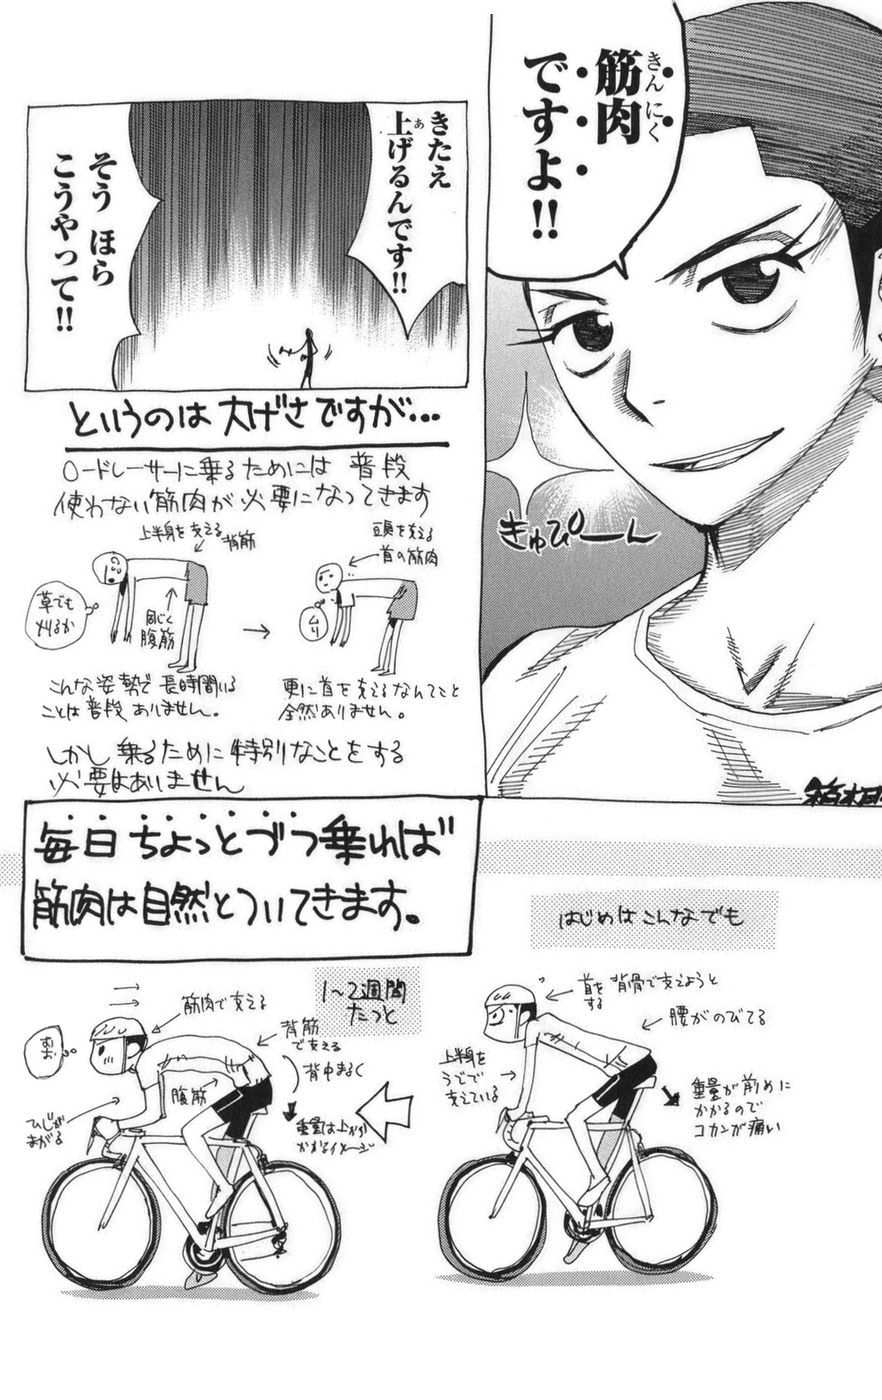 筋肉
きんにく
ですよ!!
きゅぴーん
きたえ
上げるんです!!
あ
そう ほら
こうやって!!
というのは大げさですが…
ロードレーサーに乗るためには 普段
使わない筋肉が必要になってきます
上半身を支える
背筋
草でも
刈るか
同じく
腹筋
こんな姿勢で長時間いる
ことは普段ありません。
頭を支える
首の筋肉
ムリ
更に首を支えるなんてこと
全然ありません。
しかし乗るために特別なことをする
必要はありません
毎日ちょっとづつ乗れば
筋肉は自然とついてきます。
はじめはこんなでも
首を背骨で支えようと
する
腰がのびてる
上半身を
うでで
支えている
重量が前めに
かかるので
コカンが痛い
1〜2週間
たつと
筋肉で支える
背筋
で支える
背中まるく
腹筋
ひじが
まがる
重量は上から
かかるイメージ